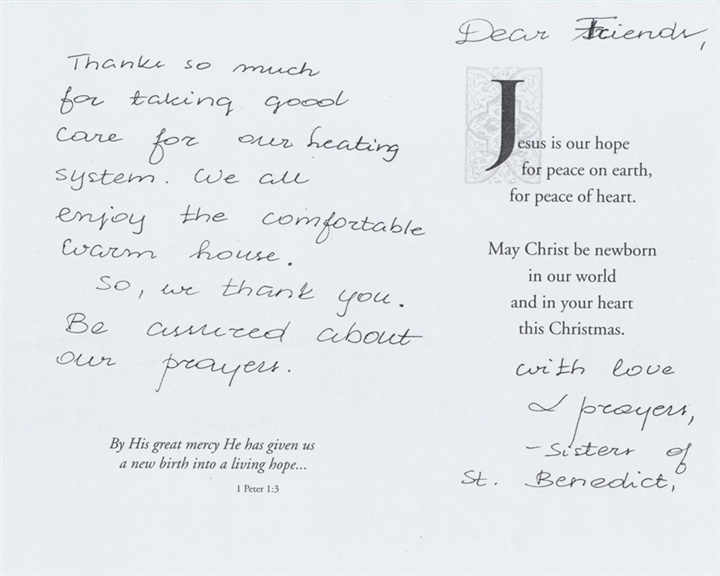 Thanks so much
for taking good
care for our heating
system. We all
enjoy the comfortable
warm house.
So, we thank you.
Be assured about
our prayers.
By His great mercy He has given us
a new birth into a living hope...
1 Peter 1:3
Dear Friends,
Jesus is our hope
for peace on earth,
for peace of heart.
May Christ be newborn
in our world
and in your heart
this Christmas.
with love
& prayers,
-Sisters of
St. Benedict,